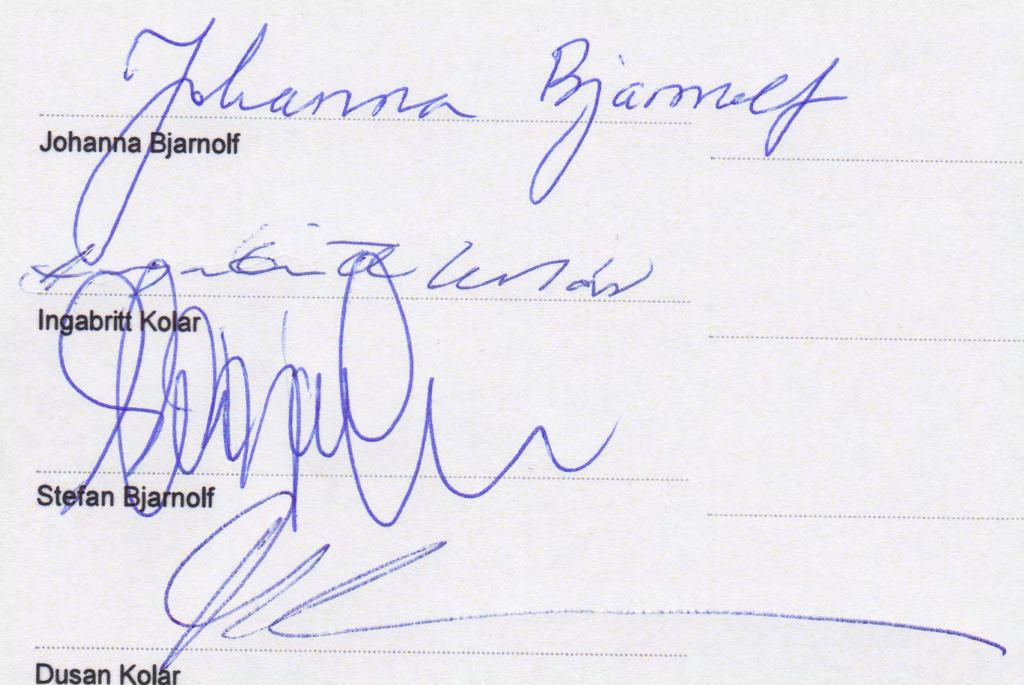 Johanna Bjarnolf
Johanna Bjarnolf
Ingabritt Kolár
Ingabritt Kolar
Stefan Bjarnolf
Dusan Kolar